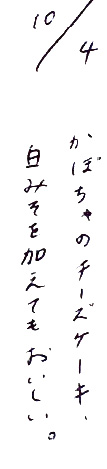 10/4
かぼちゃのチーズケーキ、
白みそを加えてもおいしい。